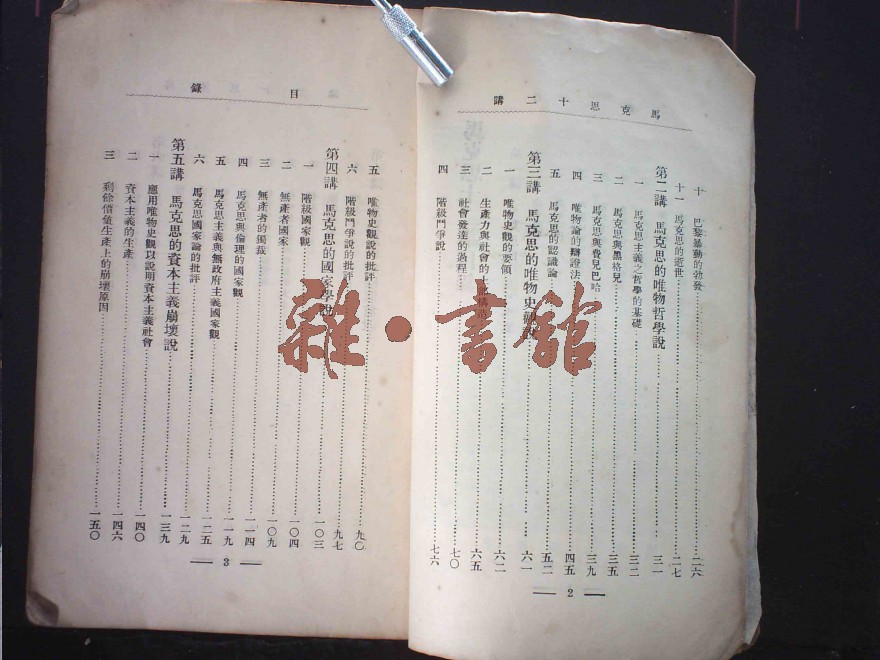 馬克思十二講
十 巴黎暴動的勃發……二六
十一 馬克思的逝世……二七
第二講 馬克思的唯物哲學說……三一
一 馬克思主義之哲學的基礎……三二
二 馬克思與黑格兒……三五
三 馬克思與費兒巴哈……三九
四 唯物論的辯證法……四五
五 馬克思的認識論……五二
第三講 馬克思的唯物史觀……六一
一 唯物史觀的要領……六二
二 生產力與社會的……六五
三 社會發達的過程……七〇
四 階級鬥爭說……七六
2
目錄
五 唯物史觀說的批評……九〇
六 階級鬥爭說的批評……九七
第四講 馬克思的國家學說……一〇三
一 階級國家觀……一〇四
二 無產者國家……一〇九
三 無產者的獨裁……一一四
四 馬克思與倫理的國家觀……一一九
五 馬克思主義與無政府主義國家觀……一二五
六 馬克思國家論的批評……一二九
第五講 馬克思的資本主義崩壞說……一三九
一 應用唯物史觀以說明資本主義社會……一四〇
二 資本主義的生產……一四六
三 剩餘價值生產上的崩壞原因……一五〇
3
雜·書館